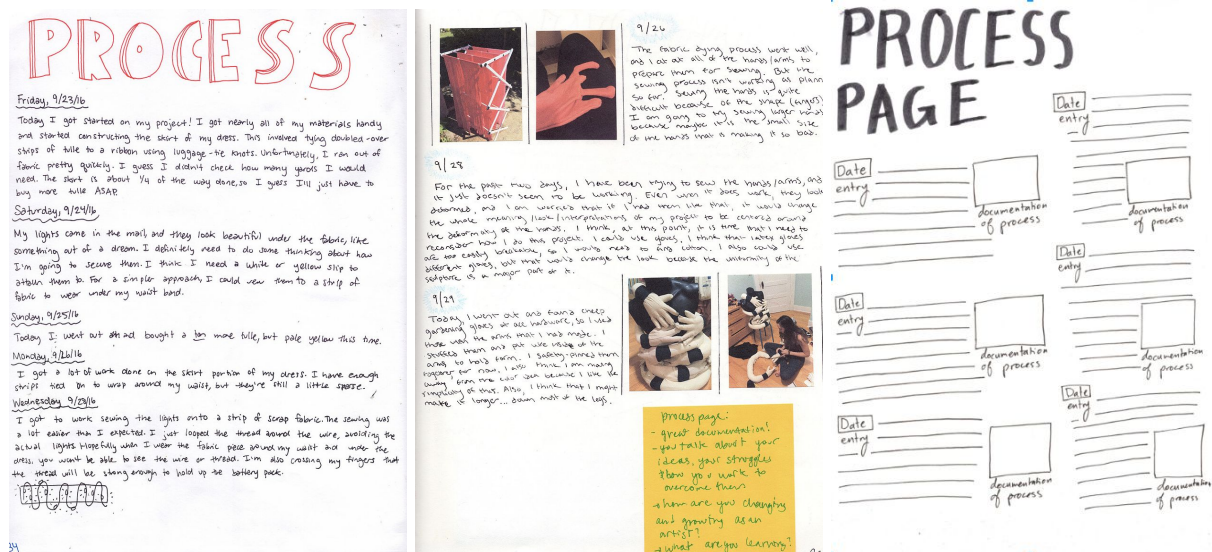 PROCESS
Friday, 9/23/16
Today I got started on my project! I got nearly all of my materials handy
and started constructing the skirt of my dress. This involved tying doubled-over
strips of tulle to a ribbon using luggage-tie knots. Unfortunately, I ran out of
fabric pretty quickly. I guess I didn't check how many yards I would
need. The skirt is about 1/4 of the way done, so I guess I'll just have to
buy more tulle ASAP.
Saturday, 9/24/16
My lights came in the mail, and they look beautiful under the fabric, like
something out of a dream. I definitely need to do some thinking about how
I'm going to secure them. I think I need a white or yellow slip to
attach them to. For a simpler approach, I could sew them to a strip of
fabric to wear under my waist band.
Sunday, 9/25/16
Today I went out and bought a ton more tulle, but pale yellow this time.
Monday, 9/26/16
I got a lot of work done on the skirt portion of my dress. I have enough
strips tied on to wrap around my waist, but they're still a little sparse.
Wednesday 9/28/16
I got to work sewing the lights onto a strip of scrap fabric. The sewing was
a lot easier than I expected. I just looped the thread around the wire, avoiding the
actual lights. Hopefully when I wear the fabric piece around my waist and under the
dress, you won't be able to see the wire or thread. I'm also crossing my fingers that
the thread will be strong enough to hold up the battery pack.
34
9/26
The fabric dying process went well,
and I cut all of the hands/arms to
prepare them for sewing. But the
sewing process isn't working as plann
so far. Sewing the hands is quite
difficult because of the shape (fingers)
I am going to try sewing larger hands
because maybe it is the small size
of the hands that is making it so bad.
9/28
For the past two days, I have been trying to sew the hands/arms, and
it just doesn't seem to be working. Even when it does work, they look
deformed, and I am worried that if I had them like that, it would change
the whole meaning/look/interpretations of my project to be centered around
the deformity of the hands. I think, at this point, it is time that I need to
reconsider how I do this project. I could use gloves, I think that latex gloves
are too easily breakable, so I would need to find cotton. I also could use
different gloves, but that would change the look because the uniformity of the
sculpture is a major part of it.
9/29
Today I went out and found cheap
gardening gloves at ace hardware, so I used
those with the arms that I had made. I
stuffed them and put wire inside of the
arms to hold form. I safety-pinned them
together for now. I also think I am moving
away from the color idea because I like the
simplicity of this. Also, I think that I might
make it longer... down most of the legs.
process page:
- great documentation!
- you talk about your
ideas, your struggles
& how you work to
overcome them
→ how are you changing
and growing as an
artist?
→ what are you learning?
PROCESS
PAGE
Date
entry
documentation
of process
Date
entry
documentation
of process
Date
entry
documentation
of process
Date
entry
documentation
of process
Date
entry
documentation
of process
Date
entry
documentation
of process